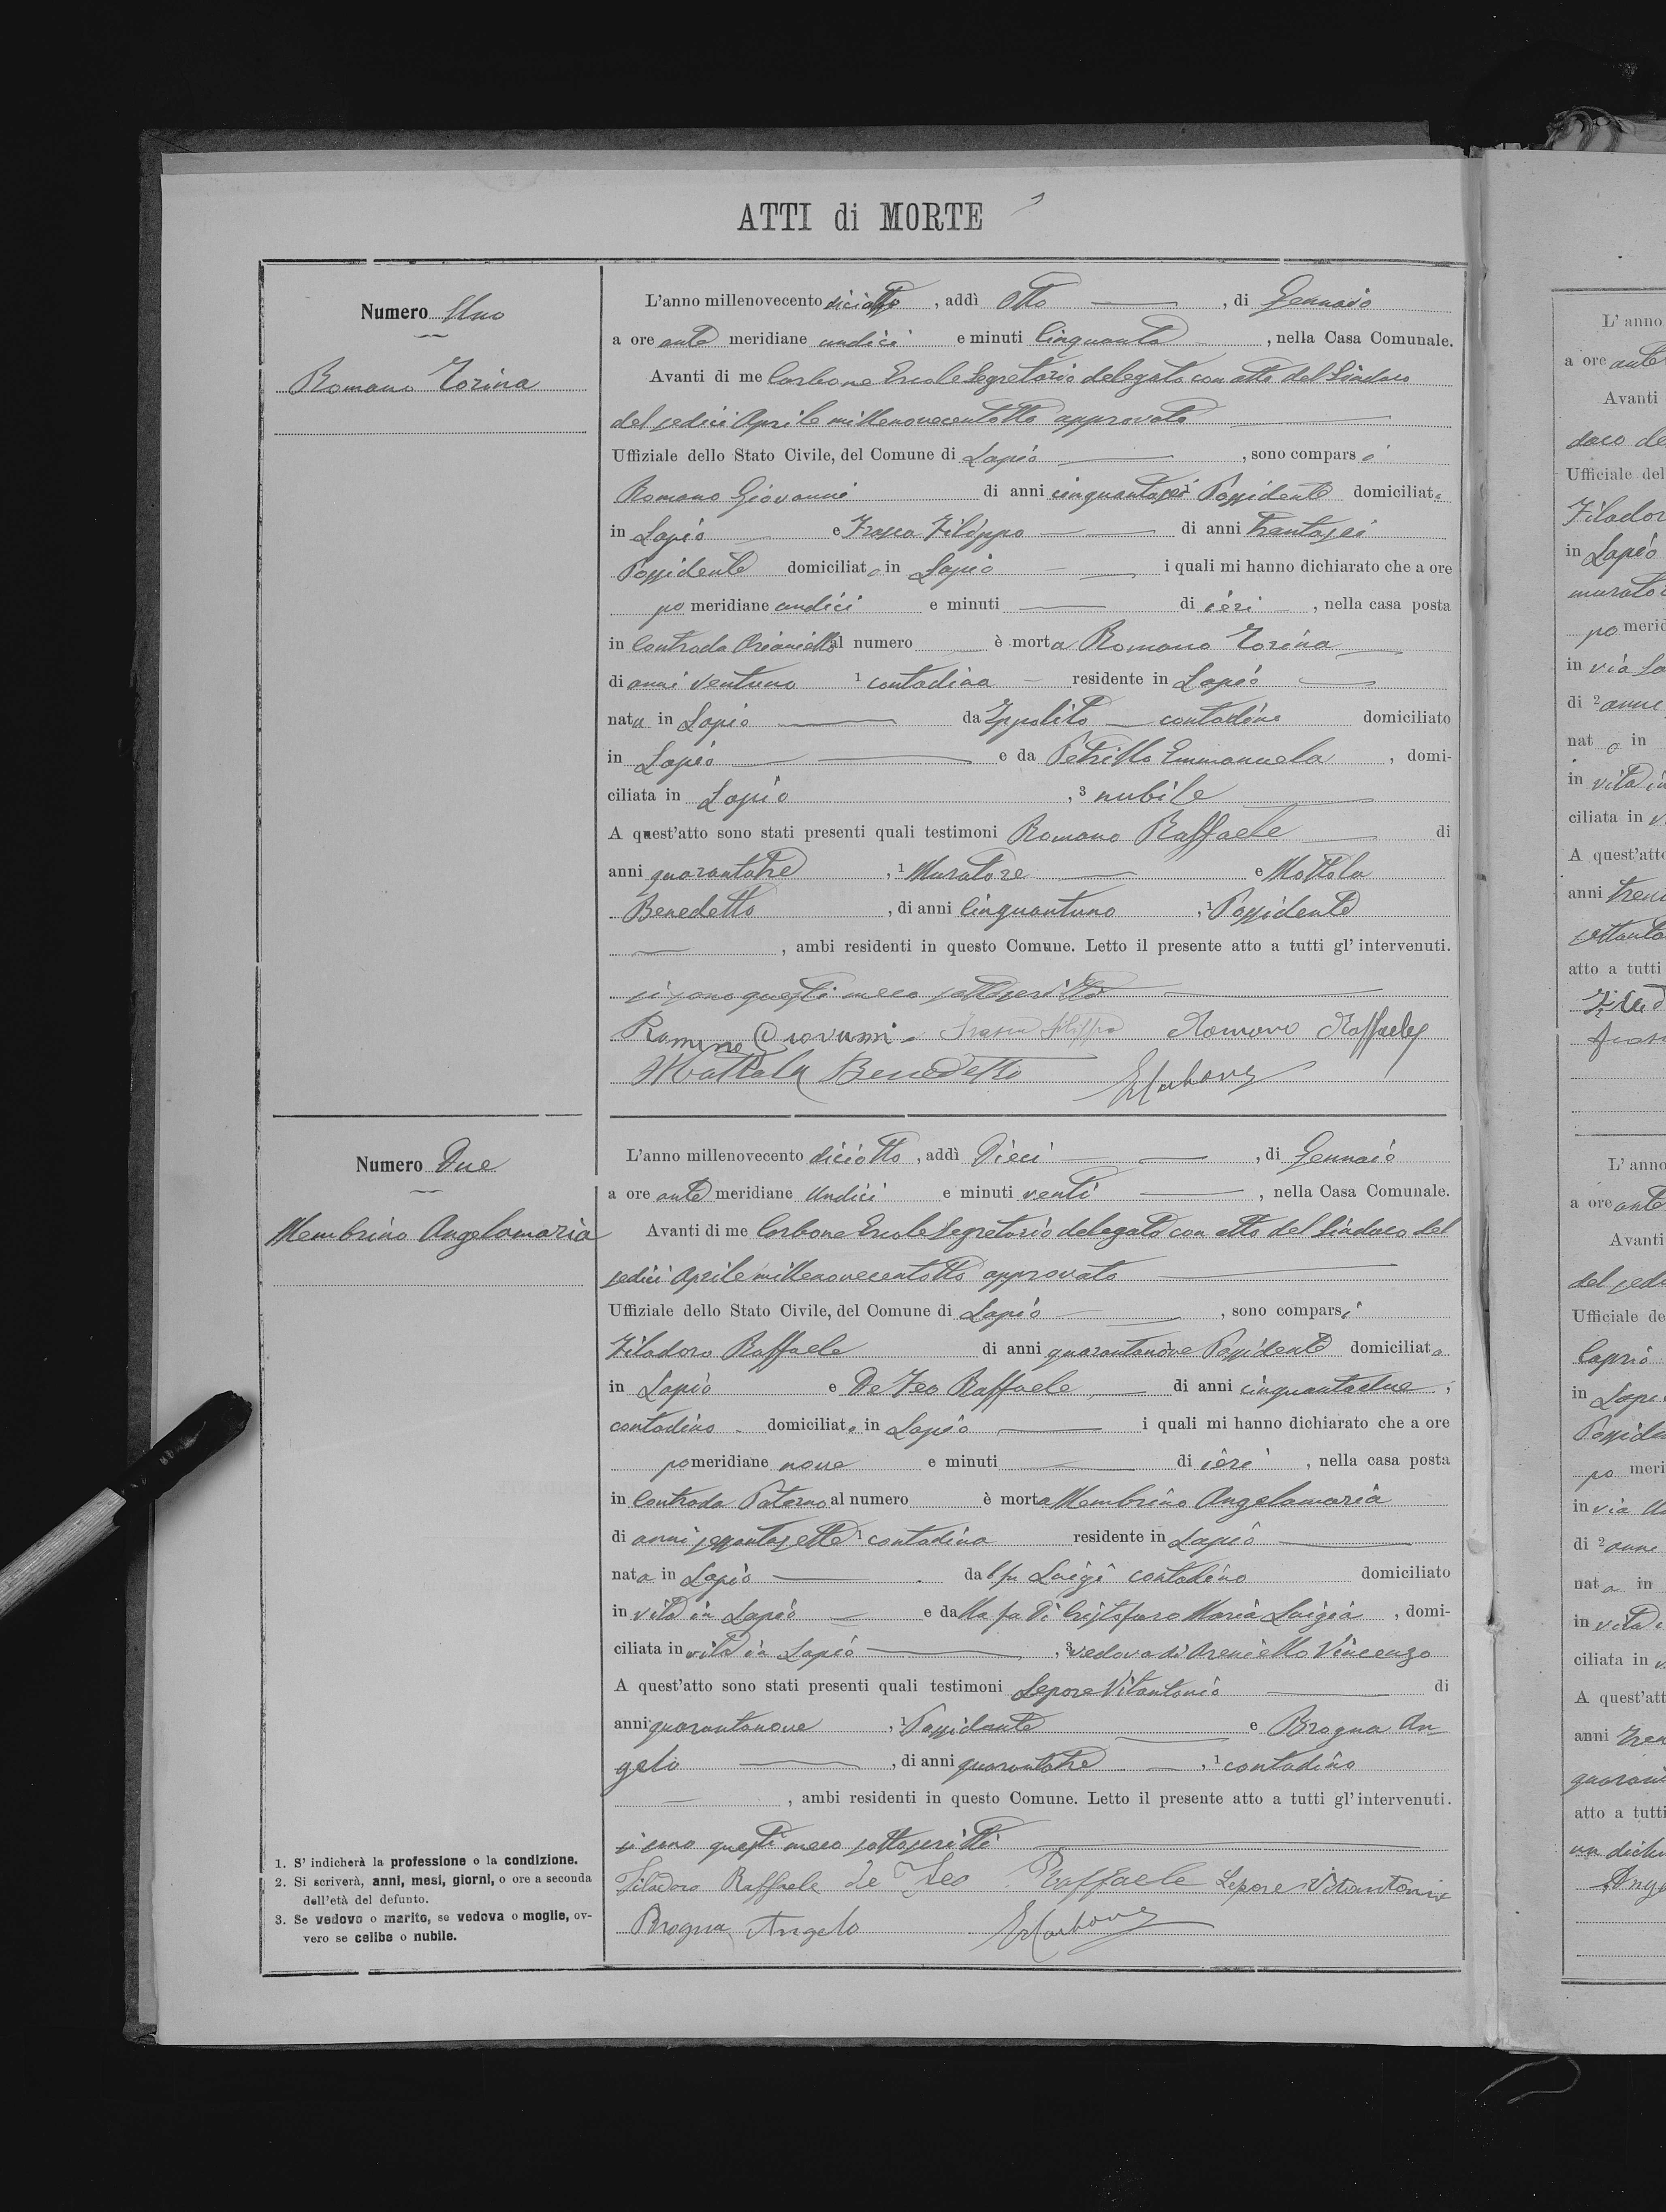 ATTI di MORTE
Numero Uno
Romano Torina
L'anno millenovecento diciotto, addì Otto, di Gennaio
a ore ante meridiane undici e minuti Cinquanta, nella Casa Comunale.
Avanti di me Carbone Ercole Segretario delegato con atto del Sindaco
del sedici Aprile millenovecentotto approvato
Uffiziale dello Stato Civile, del Comune di Lapio, sono comparsi
Romano Giovanni di anni cinquantasei 1 Possidente domiciliato
in Lapio e Frassa Filippo di anni trentasei
Possidente domiciliato in Lapio i quali mi hanno dichiarato che a ore
pomeridiane undici e minuti di ieri, nella casa posta
in Contrada al numero è morta Romano Torina
di anni ventuno 1 contadina residente in Lapio
nata in Lapio da Ippolito contadino domiciliato
in Lapio e da Petrillo Emmanuela, domi-
ciliata in Lapio, 3 nubile
A quest'atto sono stati presenti quali testimoni Romano Raffaele di
anni quarantatre, 1 Muratore e Mottola
Benedetto, di anni Cinquantuno, 1 Possidente
, ambi residenti in questo Comune. Letto il presente atto a tutti gl' intervenuti.
si sono questi meco sottoscritti
Romano Giovanni Frassa Filippo Romano Raffaele
Mottola Benedetto ECarbone
Numero Due
Membrino Angelamaria
L'anno millenovecento diciotto, addì Dieci, di Gennaio
a ore ante meridiane Undici e minuti venti, nella Casa Comunale.
Avanti di me Carbone Ercole Segretario delegato con atto del Sindaco del
sedici Aprile millenovecentotto approvato
Uffiziale dello Stato Civile, del Comune di Lapio, sono comparsi
Filadoro Raffaele di anni quarantanove Possidente domiciliato
in Lapio e De Feo Raffaele di anni cinquantadue,
contadino domiciliato in Lapio i quali mi hanno dichiarato che a ore
pomeridiane nove e minuti di ieri, nella casa posta
in Contrada Paterno al numero è morta Membrino Angelamaria
di anni sessantasette 1 contadina residente in Lapio
nata in Lapio dal fu Luigi contadino domiciliato
in vita in Lapio e dalla fu Di Cristofaro Maria Luigia, domi-
ciliata in vita in Lapio, 3 vedova di Areniello Vincenzo
A quest'atto sono stati presenti quali testimoni Lepore Vitantonio di
anni quarantanove, 1 Possidente e Brogna An-
gelo, di anni quarantatre, 1 contadino
, ambi residenti in questo Comune. Letto il presente atto a tutti gl' intervenuti.
si sono questi meco sottoscritti
Filadoro Raffaele de Feo Raffaele Lepore Vitantonio
Brogna Angelo ECarbone
1. S' indicherà la professione o la condizione.
2. Si scriverà, anni, mesi, giorni, o ore a seconda
dell'età del defunto.
3. Se vedovo o marito, se vedova o moglie, ov-
vero se celibe o nubile.
L' anno
a ore ante
Avanti
Ufficiale del
in Lapio
po merid
in via
di 2 anni
nat o in
in vita in
ciliata in
A quest'atto
anni
atto a tutti
L' anno
a ore ante
Avanti
Ufficiale de
in
po meri
in via
di 2 anni
nat a in
in vita
ciliata in
A quest'att
anni
atto a tutti